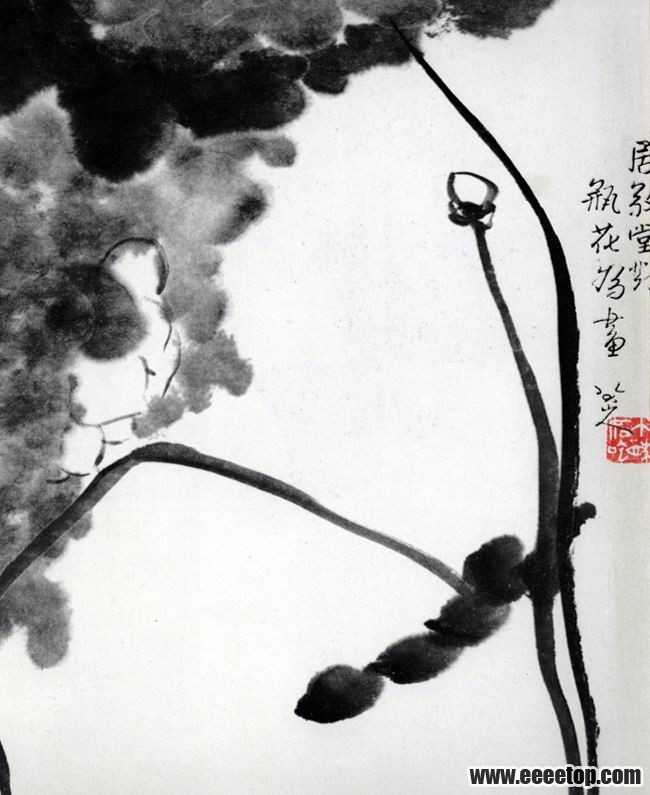 居敬堂對
瓶花為畫
www.eeeetop.com